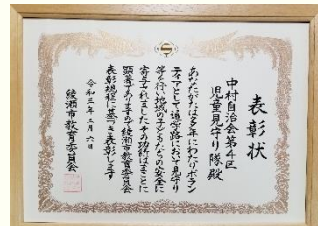 表彰状
中村自治会第4区
児童見守り隊 殿
あなたがたは多年にわたりボラン
ティアとして通学路において見守り
等を行い地域の子どもたちの安全に
寄与されましたその功績はまことに
顕著でありますので綾瀬市教育委員会
表彰規程に基づき表彰します
令和三年二月六日
綾瀬市教育委員会